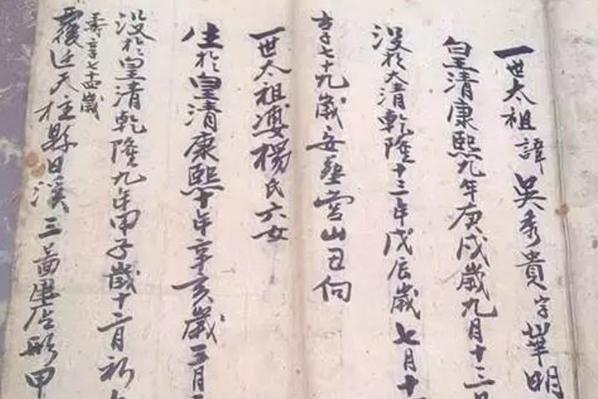 一世太祖諱吳秀貴字華明
皇清康熙九年庚戌歲九月十三
沒於大清乾隆十三年戊辰歲七月十
七十九歲安葬山丑向
一世太祖婆楊氏六女
生於皇清康熙十年辛亥歲三月
沒於皇清乾隆九年甲子歲十二月初
壽享七十四歲
覆迁天柱縣日溪三啚形甲